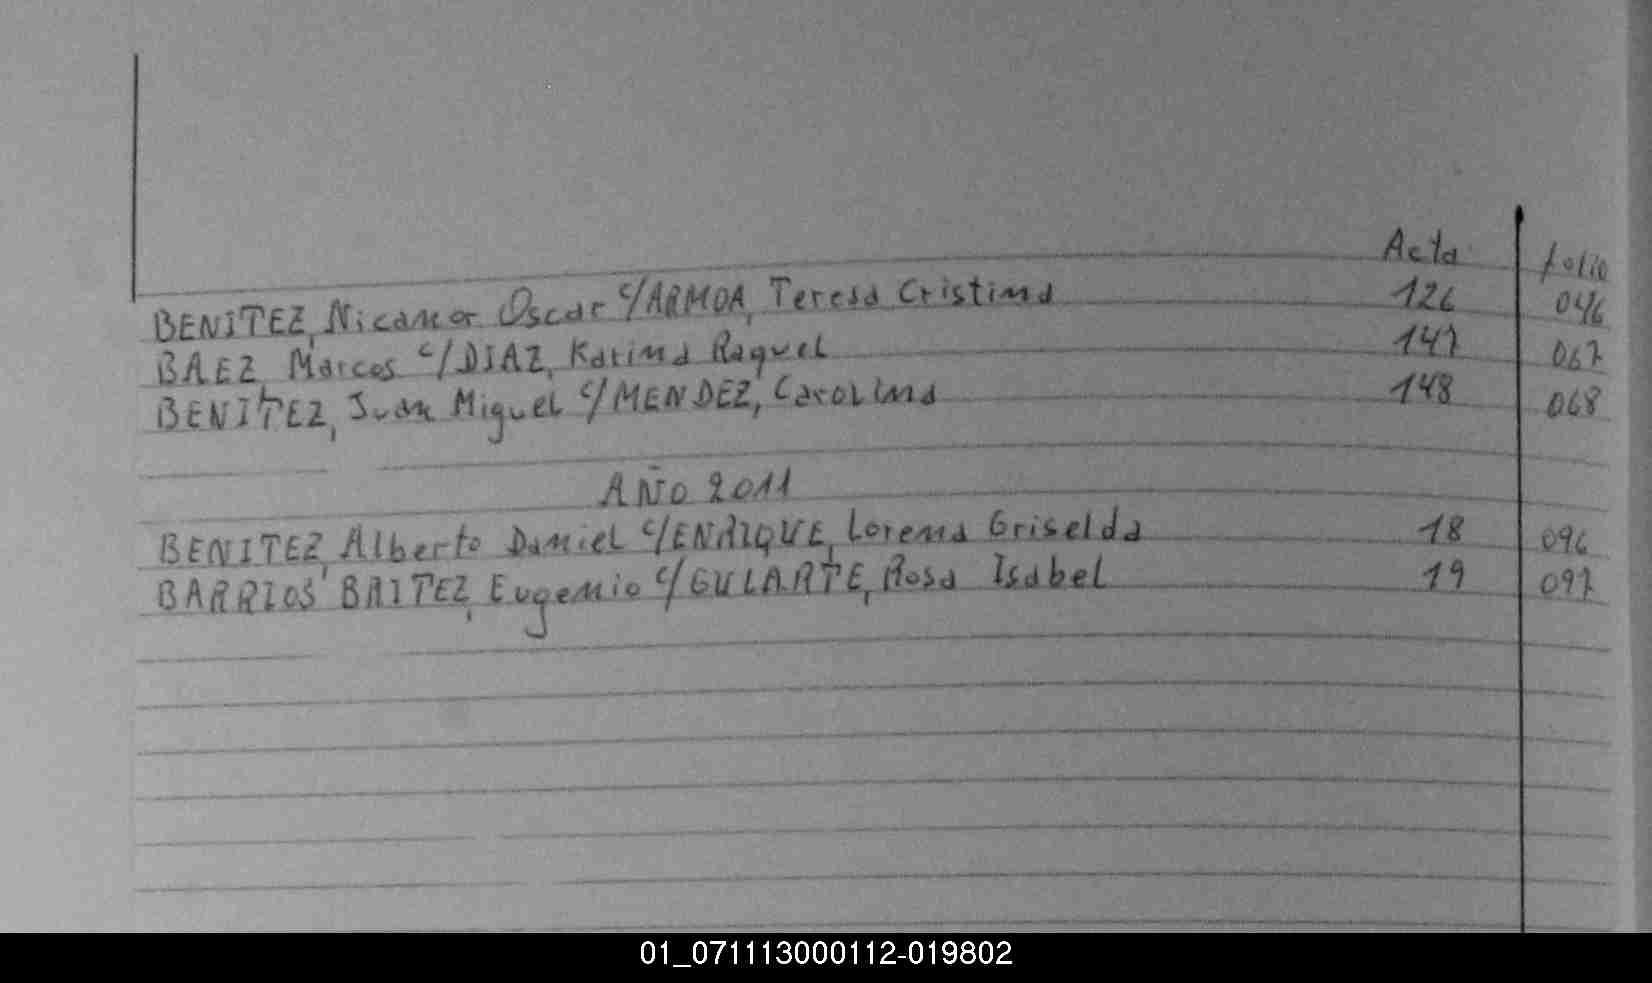 Acta folio
BENITEZ, Nicanor Oscar c/ARMOA, Teresa Cristina 126 046
BAEZ, Marcos c/DIAZ, Karina Raquel 147 067
BENITEZ, Juan Miguel c/MENDEZ, Carolina 148 068
AÑO 2011
BENITEZ, Alberto Daniel c/ENRIQUE, Lorena Griselda 18 096
BARRIOS BAITEZ, Eugenio c/GULARTE, Rosa Isabel 19 097
01_071113000112-019802